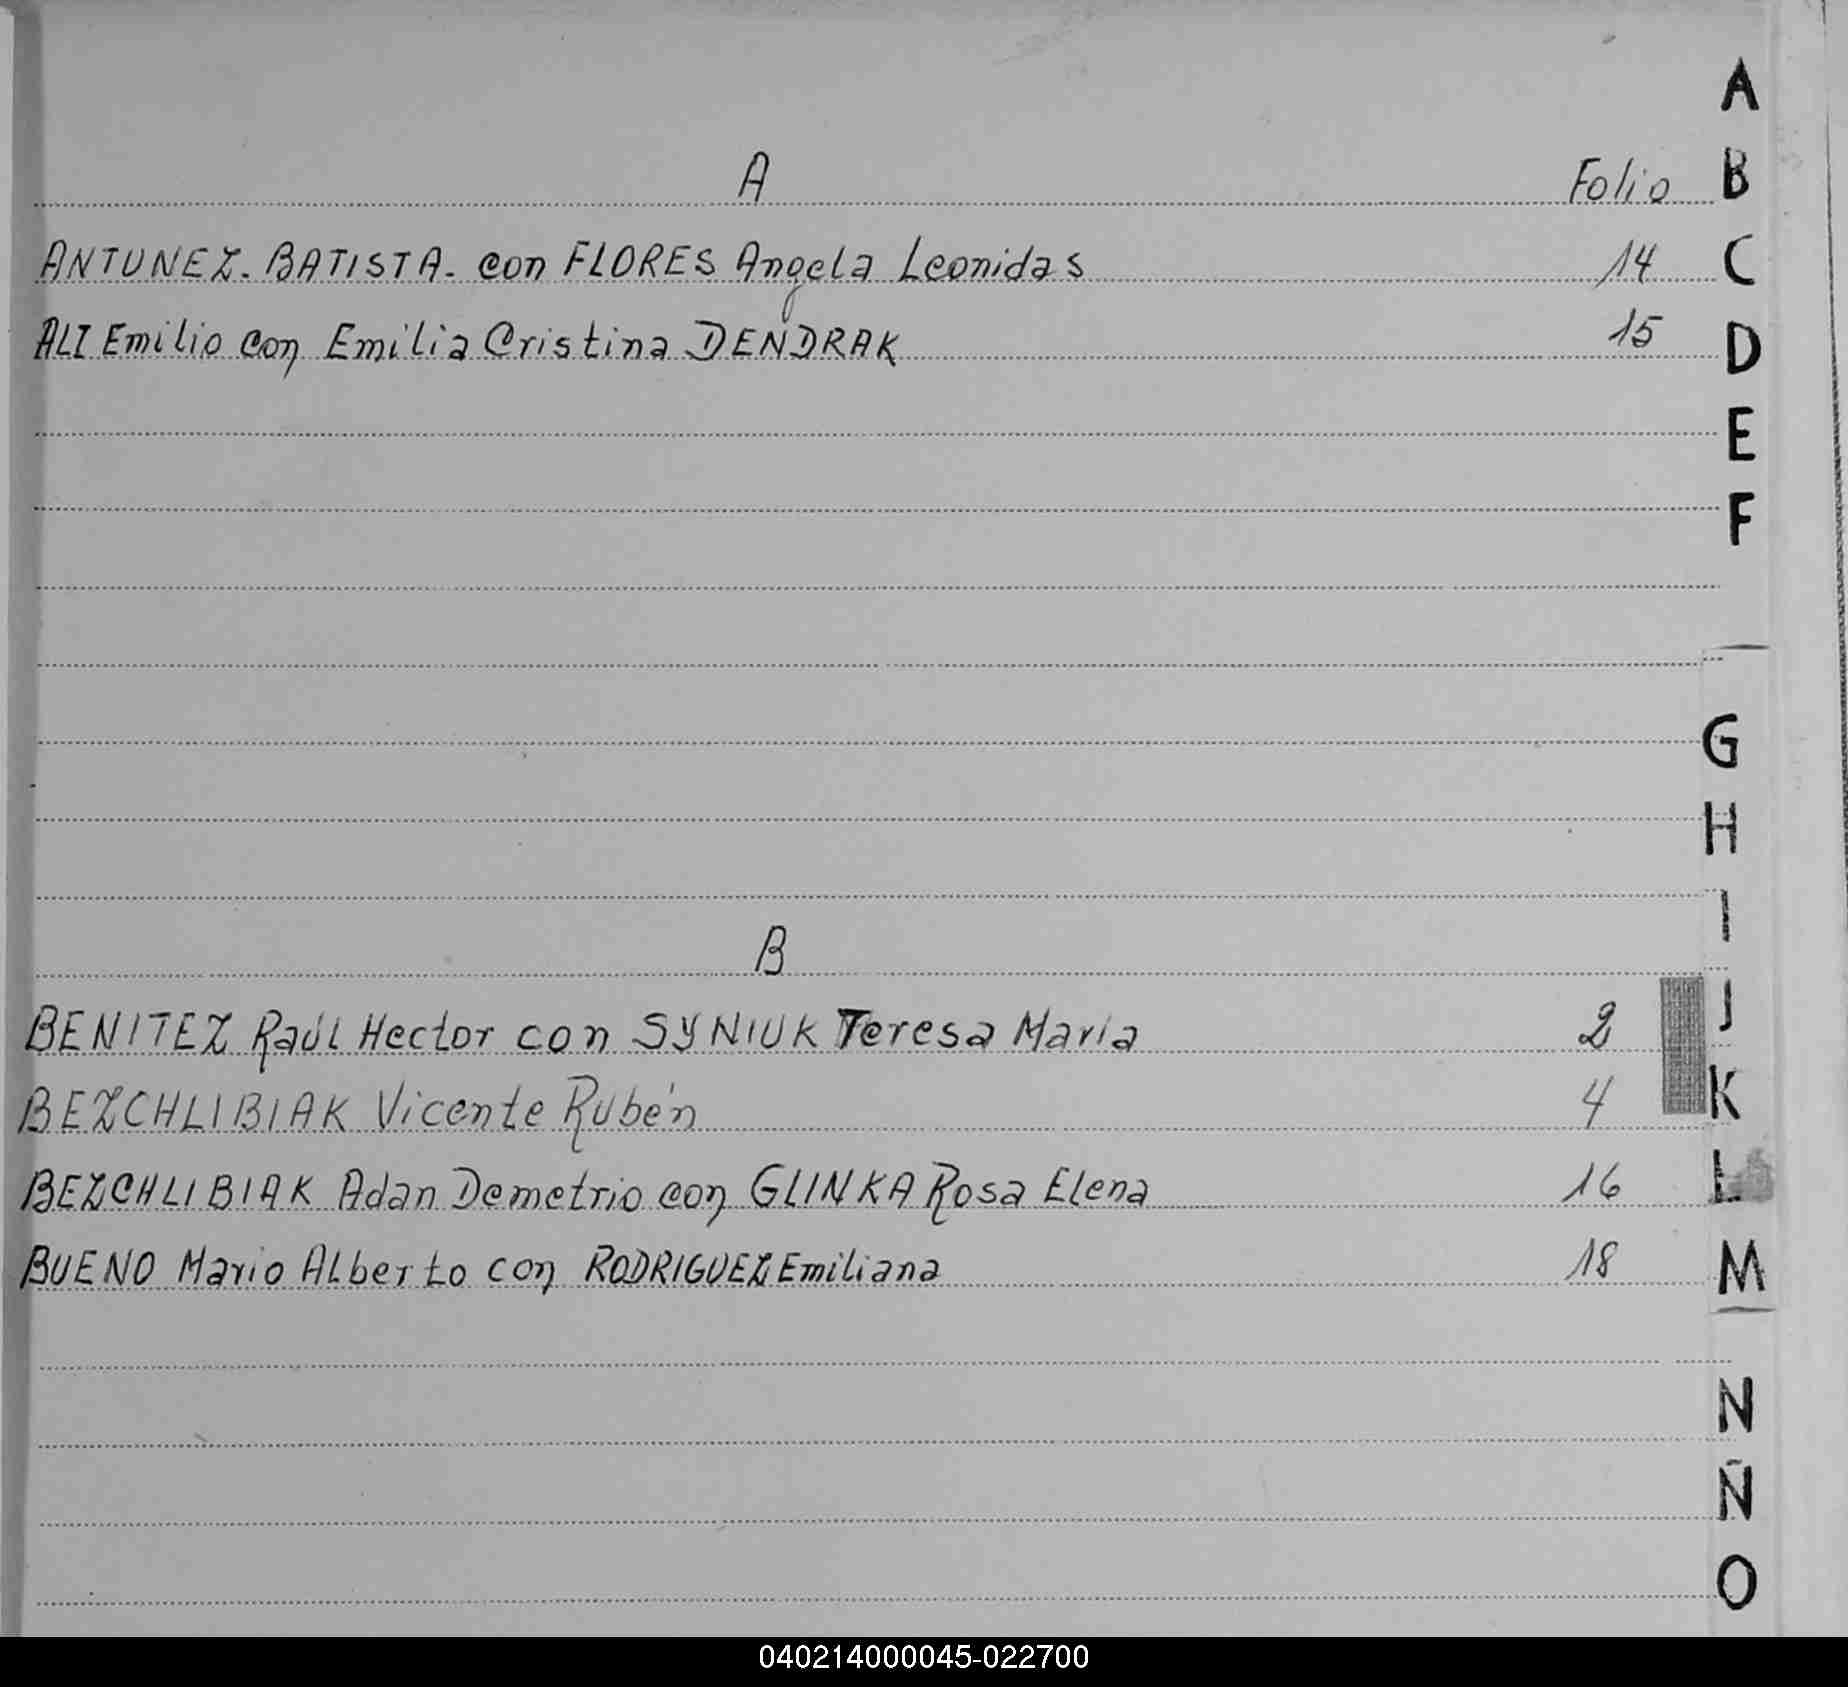 A Folio
ANTUNEZ. BATISTA. con FLORES Angela Leonidas 14
ALI Emilio con Emilia Cristina DENDRAK 15
B
BENITEZ Raúl Hector con SYNIUK Teresa María 2
BEZCHLIBIAK Vicente Rubén 4
BEZCHLIBIAK Adan Demetrio con GLINKA Rosa Elena 16
BUENO Mario Alberto con RODRIGUEZ Emiliana 18
A
B
C
D
E
F
G
H
I
J
K
L
M
N
Ñ
O
040214000045-022700